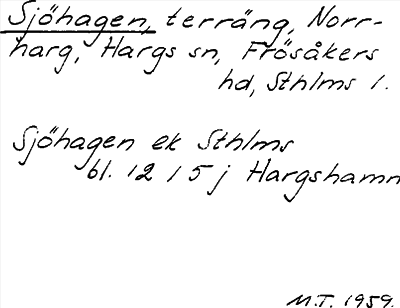 Sjöhagen, terräng, Norr-
harg, Hargs sn, Frösåkers
hd, Sthlms l.
Sjöhagen ek Sthlms
bl. 12 I 5 j Hargshamn
M.T. 1959.